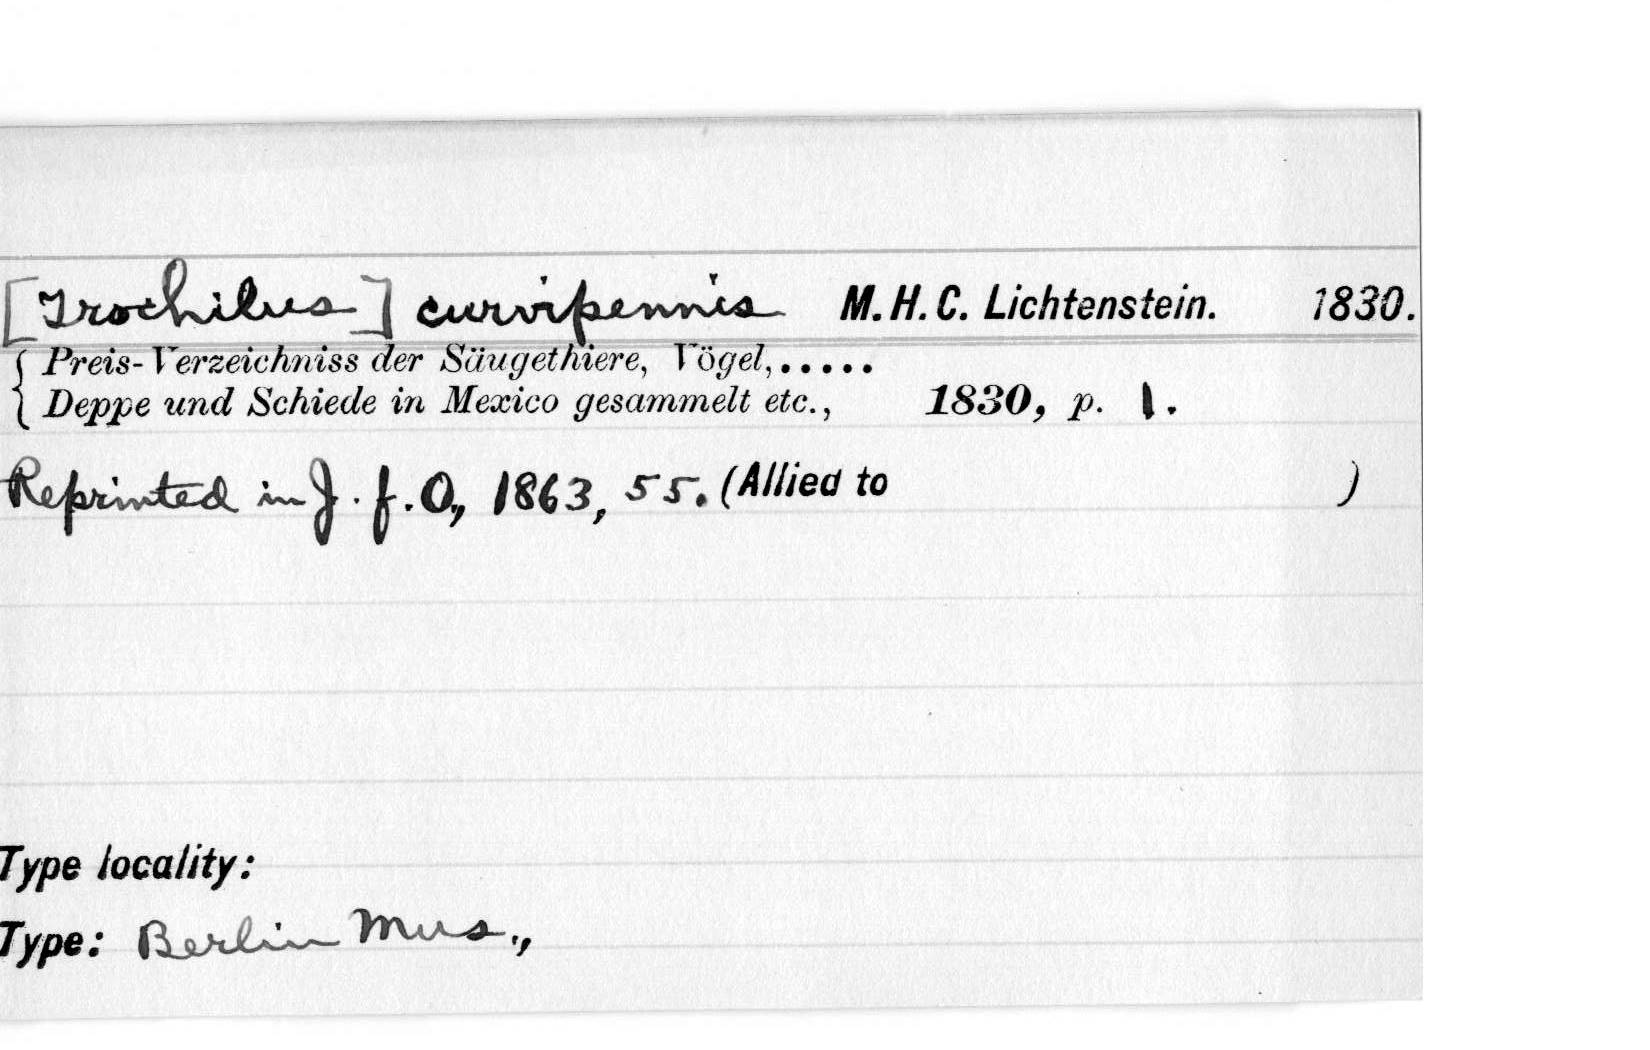 [Trochilus] curvipennis M. H. C. Lichtenstein. 1830.
{ Preis-Verzeichniss der Säugethiere, Vögel,.....
{ Deppe und Schiede in Mexico gesammelt etc., 1830, p. 1.
Reprinted in J. f. O., 1863, 55. (Allied to )
Type locality:
Type: Berlin Mus.,